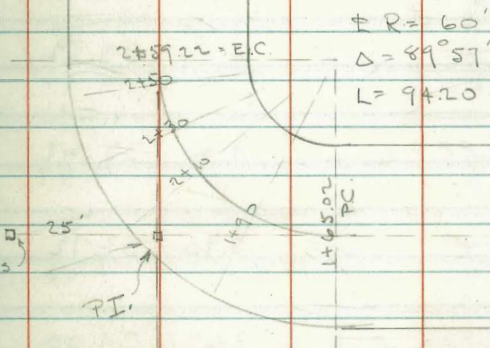 ℄ R = 60'
Δ = 89°57'
L = 94.20
2+59.22 = E.C.
2+50
2+30
2+10
1+90
1+65.02
P.C.
25'
P.I.